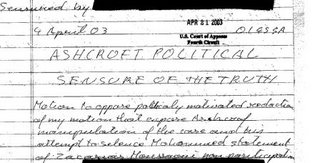 Sensured by
APR 21 2003
U.S. Court of Appeals
Fourth Circuit
9 April 03
OLGSGA
ASHCROFT POLITICAL
SENSURE OF THE TRUTH
Motion to oppose politicaly motivated redaction
of my motion that expose Ashcroft
manipulation of the case and his
attempt to selence Mohammed statement
of Zacarias Moussaoui non participation